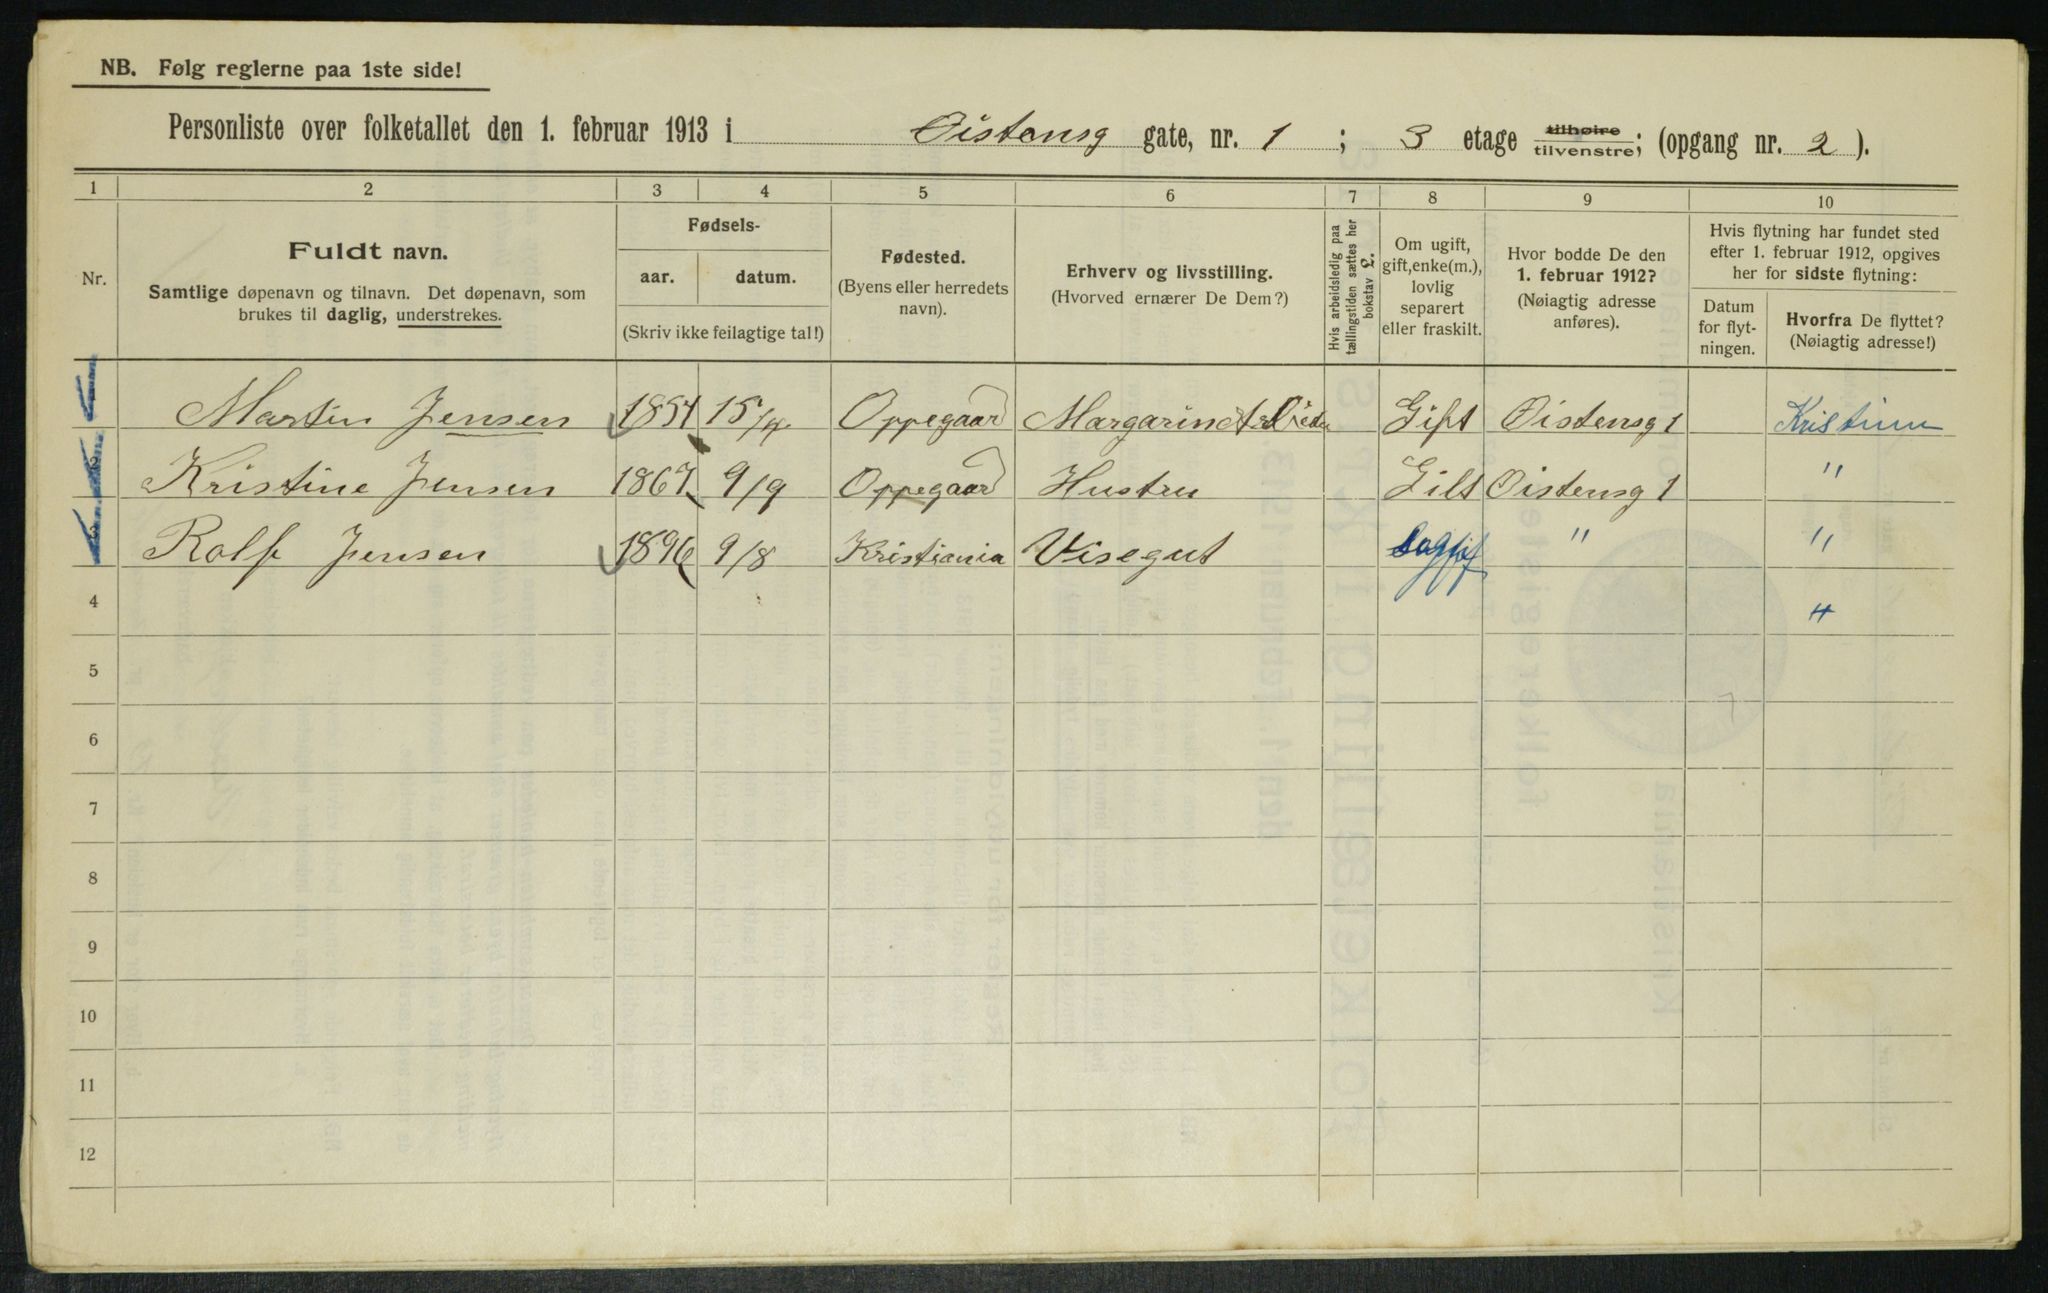 NB. Følg reglerne paa 1ste side!
Personliste over folketallet den 1. februar 1913 i Øistensg gate, nr. 1 ; 3 etage tilhøire tilvenstre; (opgang nr. 2 ).
1 2 3 4 5 6 7 8 9 10
Nr.
Fuldt navn.
Samtlige døpenavn og tilnavn. Det døpenavn, som
brukes til daglig, understrekes.
Fødsels-
aar. datum.
(Skriv ikke feilagtige tal!)
Fødested.
(Byens eller herredets
navn).
Erhverv og livsstilling.
(Hvorved ernærer De Dem?)
Hvis arbeidsledig paa
tællingstiden sættes her
bokstav L.
Om ugift,
gift, enke(m.),
lovlig
separert
eller fraskilt.
Hvor bodde De den
1. februar 1912?
(Nøiagtig adresse
anføres).
Hvis flytning har fundet sted
efter 1. februar 1912, opgives
her for sidste flytning:
Datum
for flyt-
ningen.
Hvorfra De flyttet?
(Nøiagtig adresse!)
Martin Jensen 1854 15/4 Oppegaard Gift Øistensg 1
2 Kristine Jensen 1867 9/9 Oppegaard Hustru Gift Øistensg 1 "
3 Rolf Jensen 1896 9/8 Kristiania Visegut " "
4 "
5
6
7
8
9
10
11
12